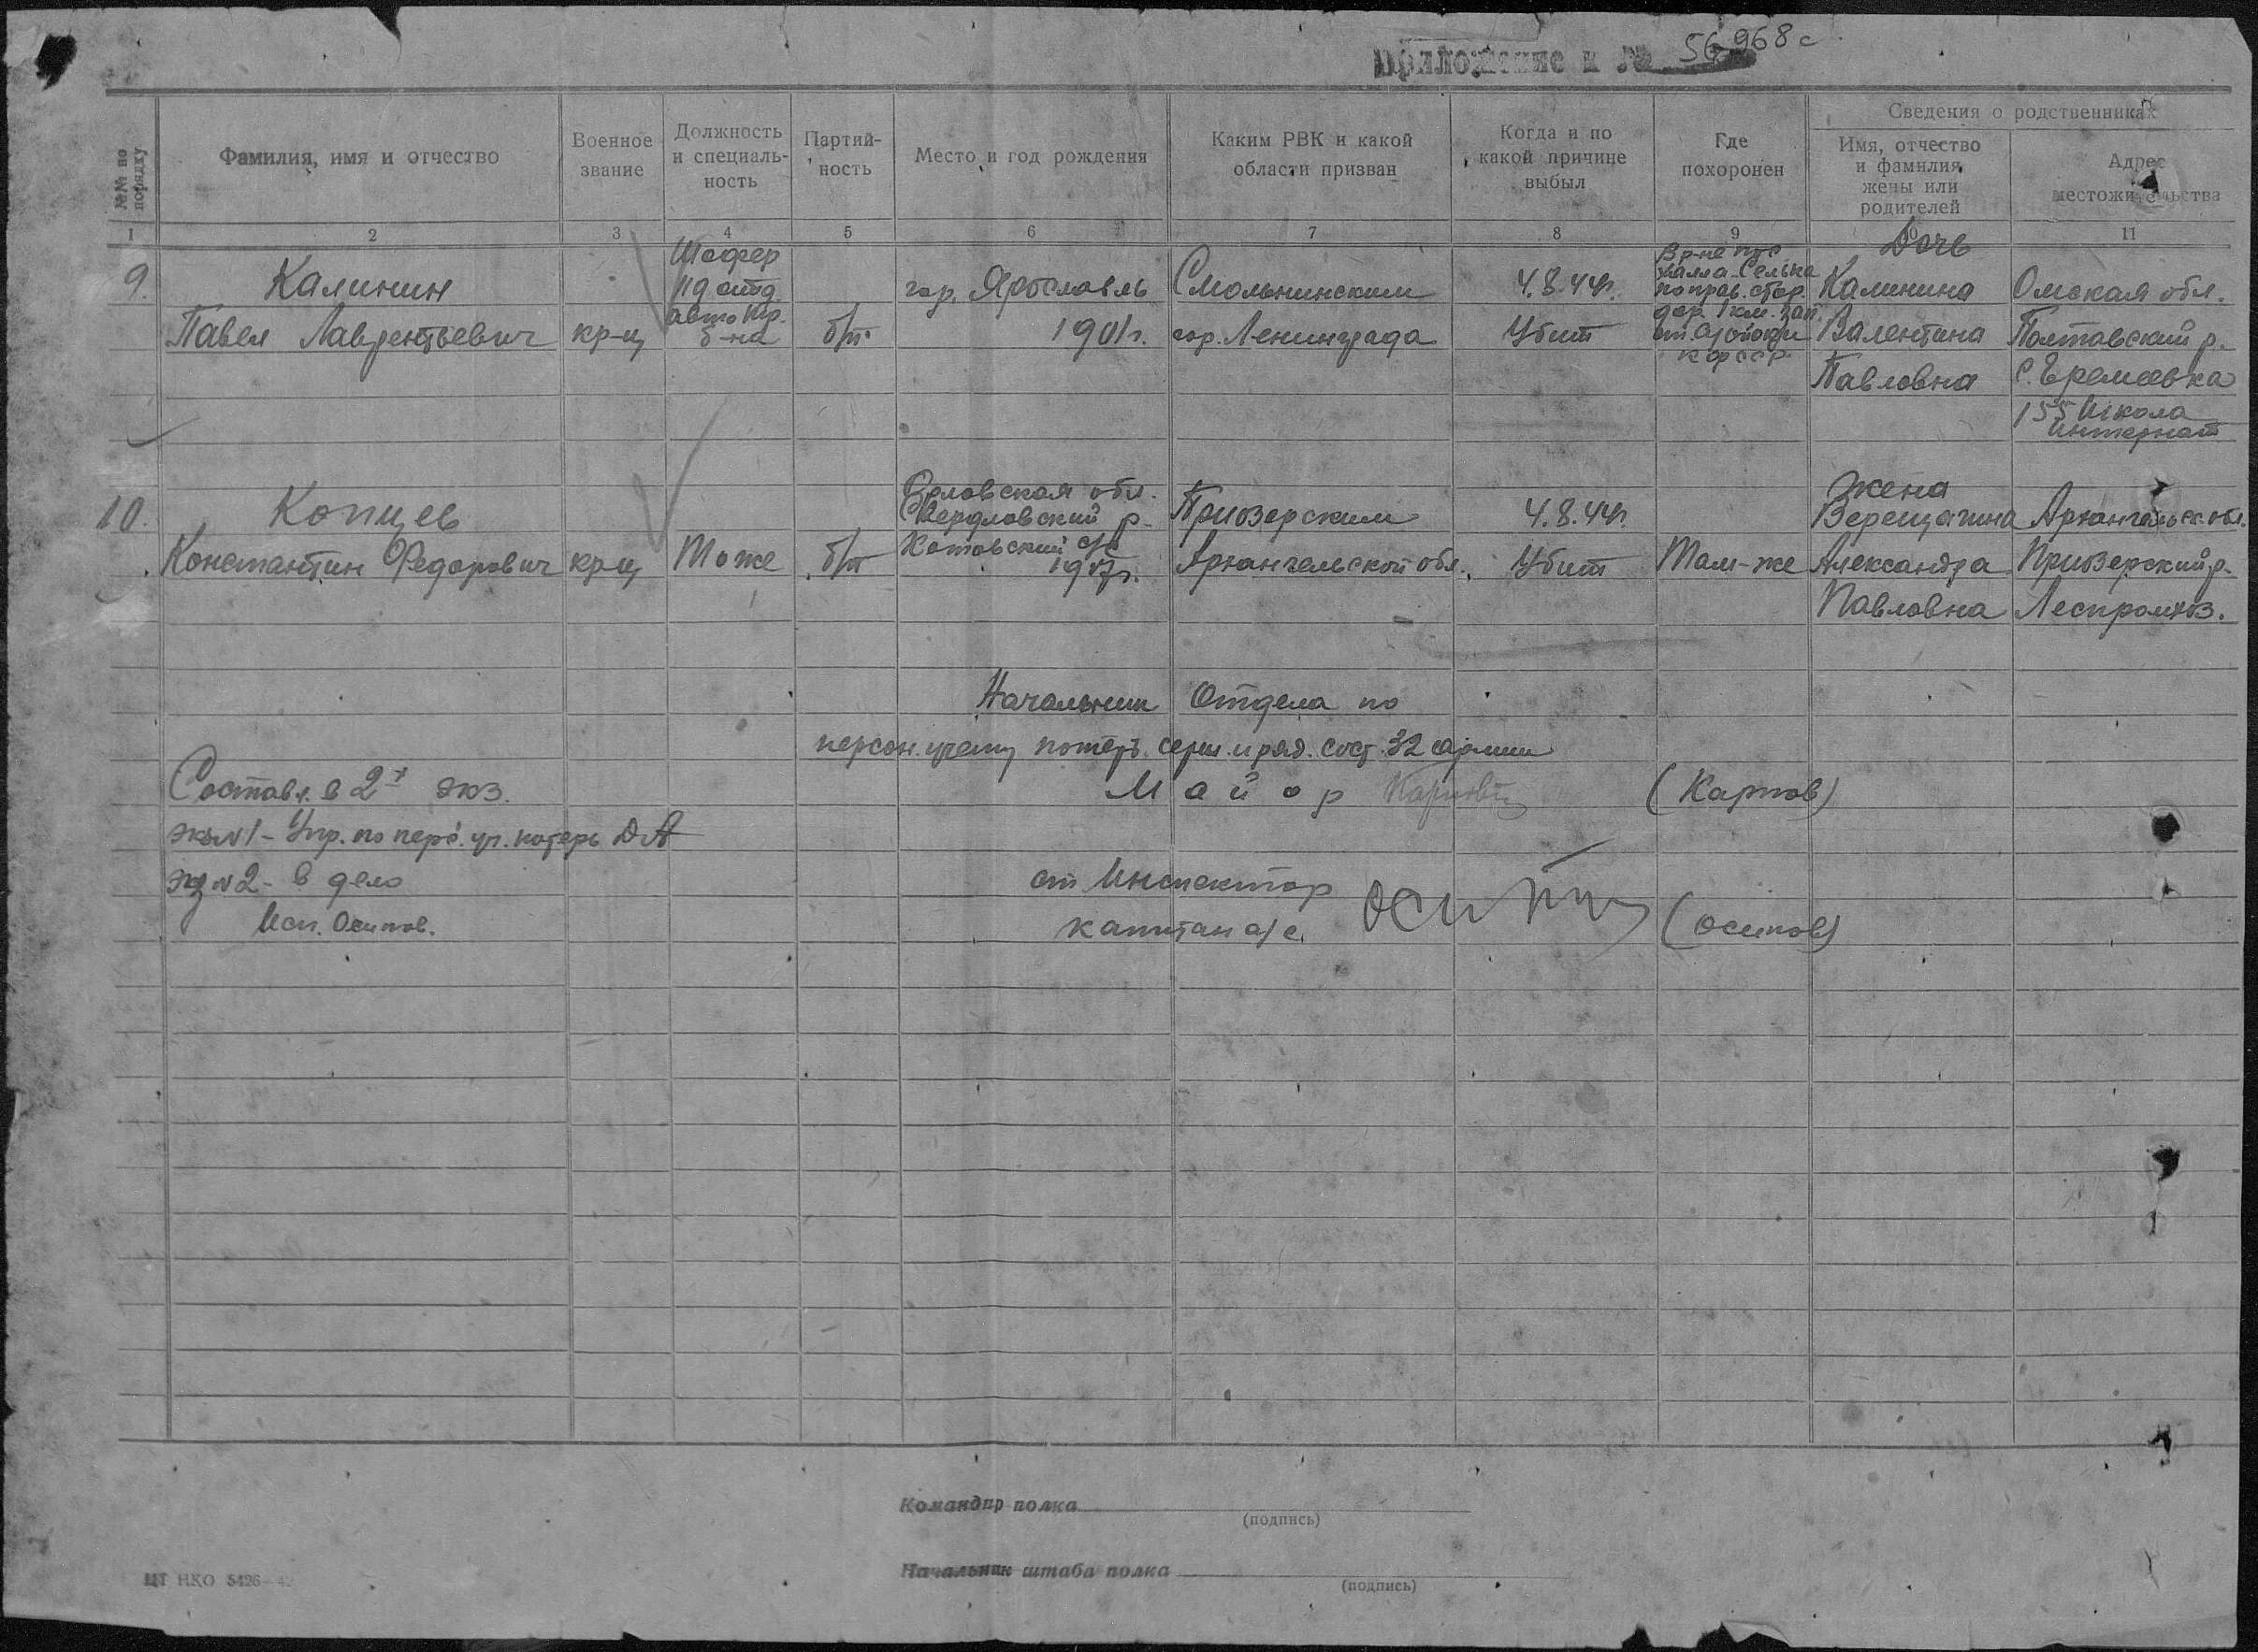 Приложение к № 56968с
№№ по порядку
Фамилия, имя и отчество
Военное звание
Должность и специаль-ность
Партий-ность
Место и год рождения
Каким РВК и какой области призван
Когда и по какой причине выбыл
Где похоронен
Сведения о родственниках
Имя, отчество и фамилия жены или родителей
Адрес местожительства
1 2 3 4 5 6 7 8 9 10 11
9.
Калинин
Павел Лаврентьевич
кр-ц
Шофер
119 отд.
авто тр.
б-на
б/п
гор. Ярославль
1901г.
Смольнинским
гор. Ленинграда
4.8.44г.
Убит
В р-не
по прав. стор.
дор. 1 км. зап.
КФССР
Дочь
Калинина
Валентина
Павловна
Омская обл.
Полтавский р.
с. Еремеевка
155 Школа
Интернат
10.
Копцев
Константин Федорович
кр-ц
То же
б/п
Орловская обл.
Свердловский р.
Котовский с/с
1907г.
Приозерским
Архангельской обл.
4.8.44г.
Убит
Там-же
Жена
Верещагина
Александра
Павловна
Архангельск. обл.
Приозерский р.
Леспромхоз.
Начальник Отдела по
персон. учету потерь серж. и ряд. сост. 32 армии
Майор (Карпов)
Составл. в 2х экз.
экз №1 - Упр. по перс. уч. потерь ДА
экз №2 - в дело
Исп. Осипов.
ст Инспектор
капитан а/с (Осипов)
Командир полка
(подпись)
Начальник штаба полка
(подпись)
ЦТ НКО 5426-42